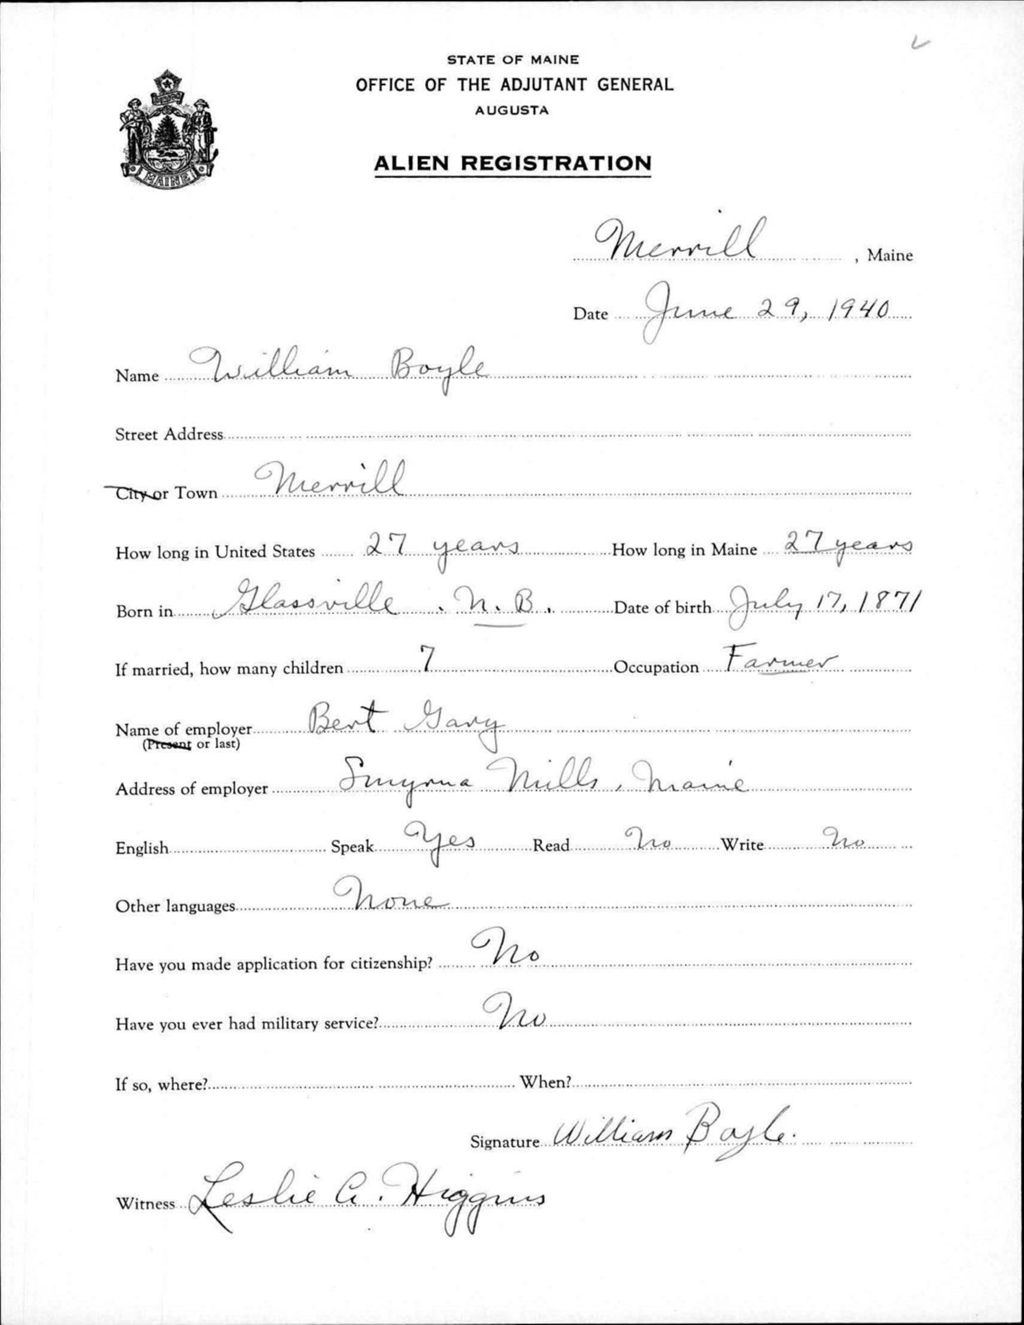 STATE OF MAINE
OFFICE OF THE ADJUTANT GENERAL
AUGUSTA
ALIEN REGISTRATION
MAINE
Merrill, Maine
Date June 29, 1940
Name William Boyle
Street Address
City or Town Merrill
How long in United States 27 years How long in Maine 27 years
Born in Glassville, N.B. Date of birth July 17, 1871
If married, how many children 7 Occupation Farmer
Name of employer Bert Gary
(Present or last)
Address of employer Smyrna Mills, Maine
English Speak Yes Read No Write No
Other languages None
Have you made application for citizenship? No
Have you ever had military service? No
If so, where? When?
Signature William Boyle.
Witness Leslie A. Higgins